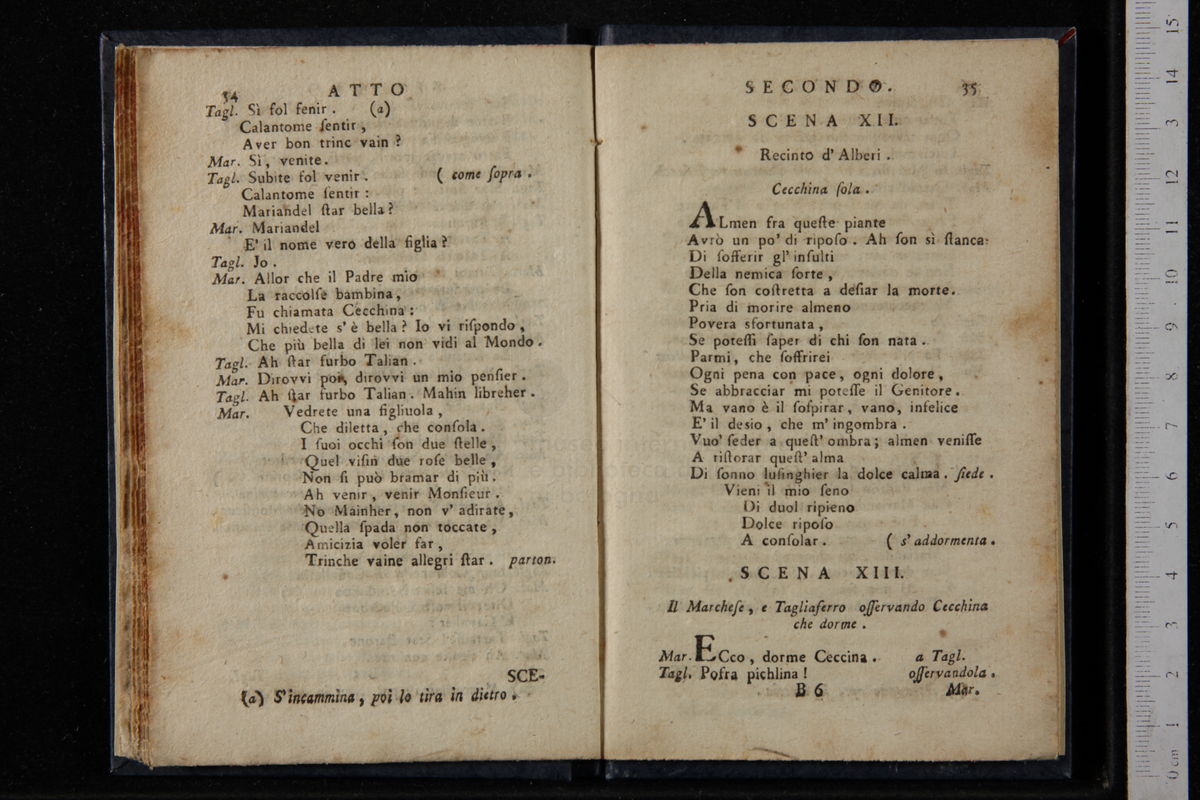 34 ATTO
Tagl. Sì ſol fenir . (a)
Calantome ſentir ,
Aver bon trinc vain ?
Mar. Sì, venite.
Tagl. Subite ſol venir . ( come ſopra .
Calantome ſentir :
Mariandel ſtar bella ?
Mar. Mariandel
E' il nome vero della figlia ?
Tagl. Jo .
Mar. Allor che il Padre mio
La raccolſe bambina ,
Fu chiamata Cecchina :
Mi chiedete s' è bella ? Io vi riſpondo ,
Che più bella di lei non vidi al Mondo .
Tagl. Ah ſtar furbo Talian .
Mar. Dirovvi poi, dirovvi un mio penſier .
Tagl. Ah ſtar furbo Talian . Mahin libreher .
Mar. Vedrete una figliuola ,
Che diletta , che conſola .
I ſuoi occhi ſon due ſtelle ,
Quel viſin due roſe belle ,
Non ſi può bramar di più .
Ah venir , venir Monſieur .
No Mainher, non v' adirate ,
Quella ſpada non toccate ,
Amicizia voler far ,
Trinche vaine allegri ſtar . parton.
SCE-
(a) S'incammina , poi lo tira in dietro .
SECONDO. 35
SCENA XII.
Recinto d' Alberi .
Cecchina ſola .
ALmen fra queſte piante
Avrò un po' di ripoſo . Ah ſon sì ſtanca
Di ſofferir gl' inſulti
Della nemica ſorte ,
Che ſon coſtretta a deſiar la morte .
Pria di morire almeno
Povera sfortunata ,
Se poteſſi ſaper di chi ſon nata .
Parmi , che ſoffrirei
Ogni pena con pace , ogni dolore ,
Se abbracciar mi poteſſe il Genitore .
Ma vano è il ſoſpirar, vano, infelice
E' il desio , che m' ingombra .
Vuo' ſeder a queſt' ombra ; almen veniſſe
A riſtorar queſt' alma
Di ſonno luſinghier la dolce calma . ſiede .
Vieni il mio ſeno
Di duol ripieno
Dolce ripoſo
A conſolar . ( s' addormenta .
SCENA XIII.
Il Marcheſe , e Tagliaferro oſſervando Cecchina
che dorme .
Mar. ECco , dorme Ceccina . a Tagl.
Tagl. Pofra pichlina ! oſſervandola .
B 6 Mar.